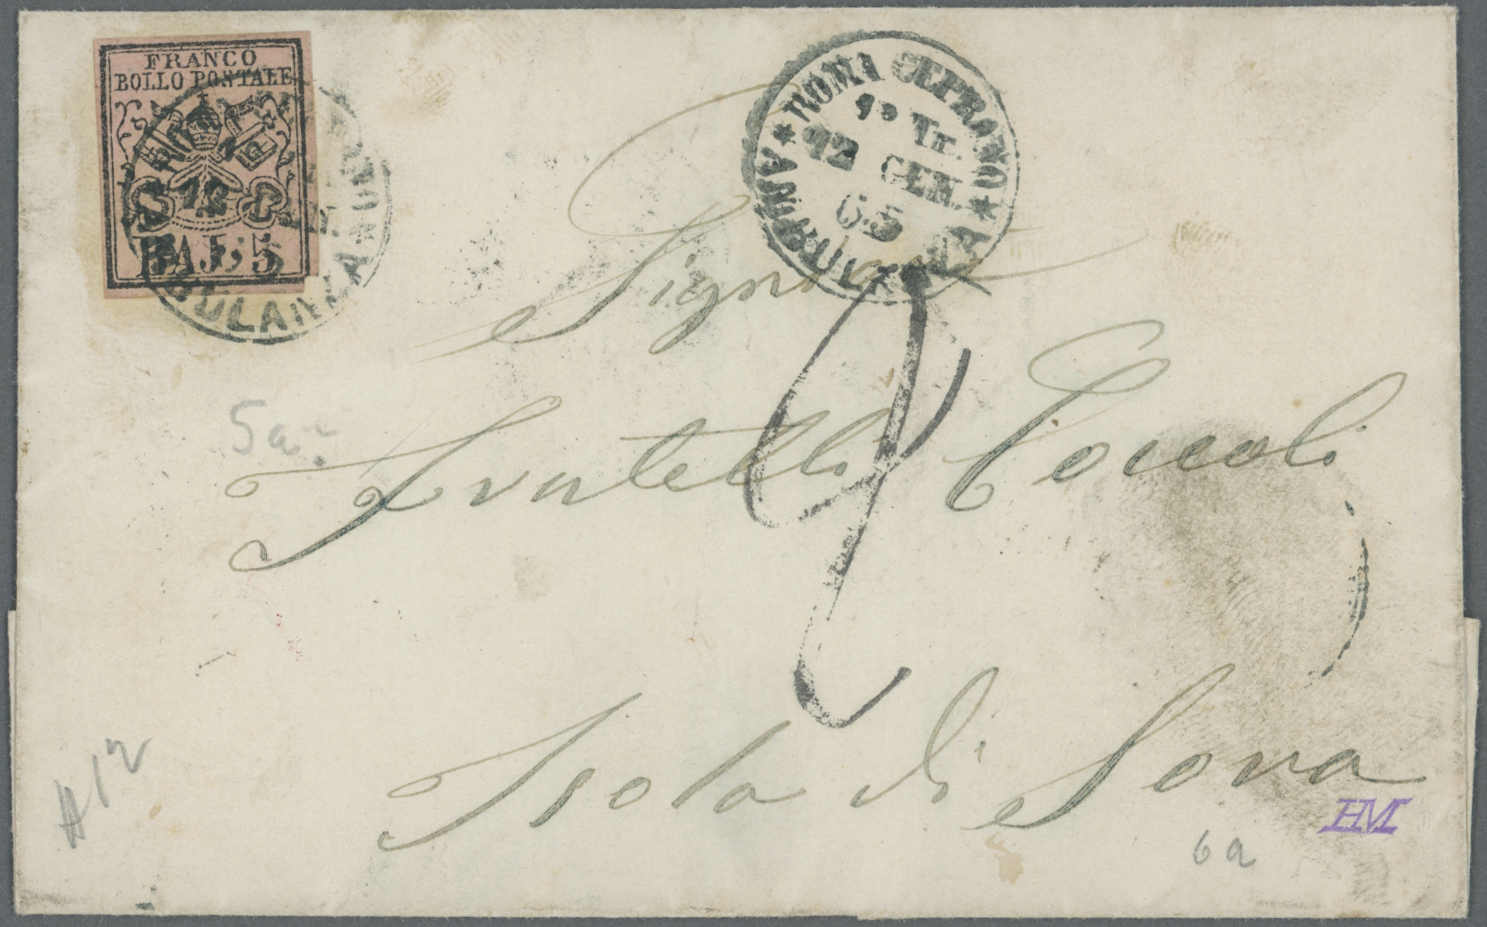 FRANCO
BOLLO POSTALE
12
BAJ. 5
ROMA CEPRANO
AMBULANZA
1º Tr.
12 GEN.
65
Signori
5a
Fratelli Coccoli
Isola di Sora
#12
HM
6a